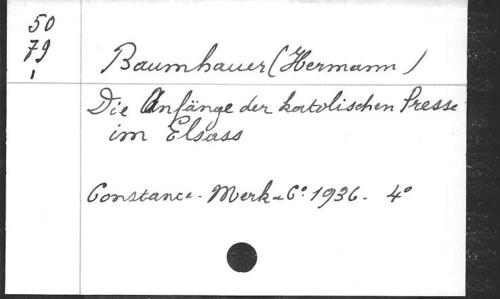 50
79
1
Baumhauer (Hermann)
Die Anfänge der katolischen Presse
im Elsass
Constance - Merk u Cº 1936 - 4º